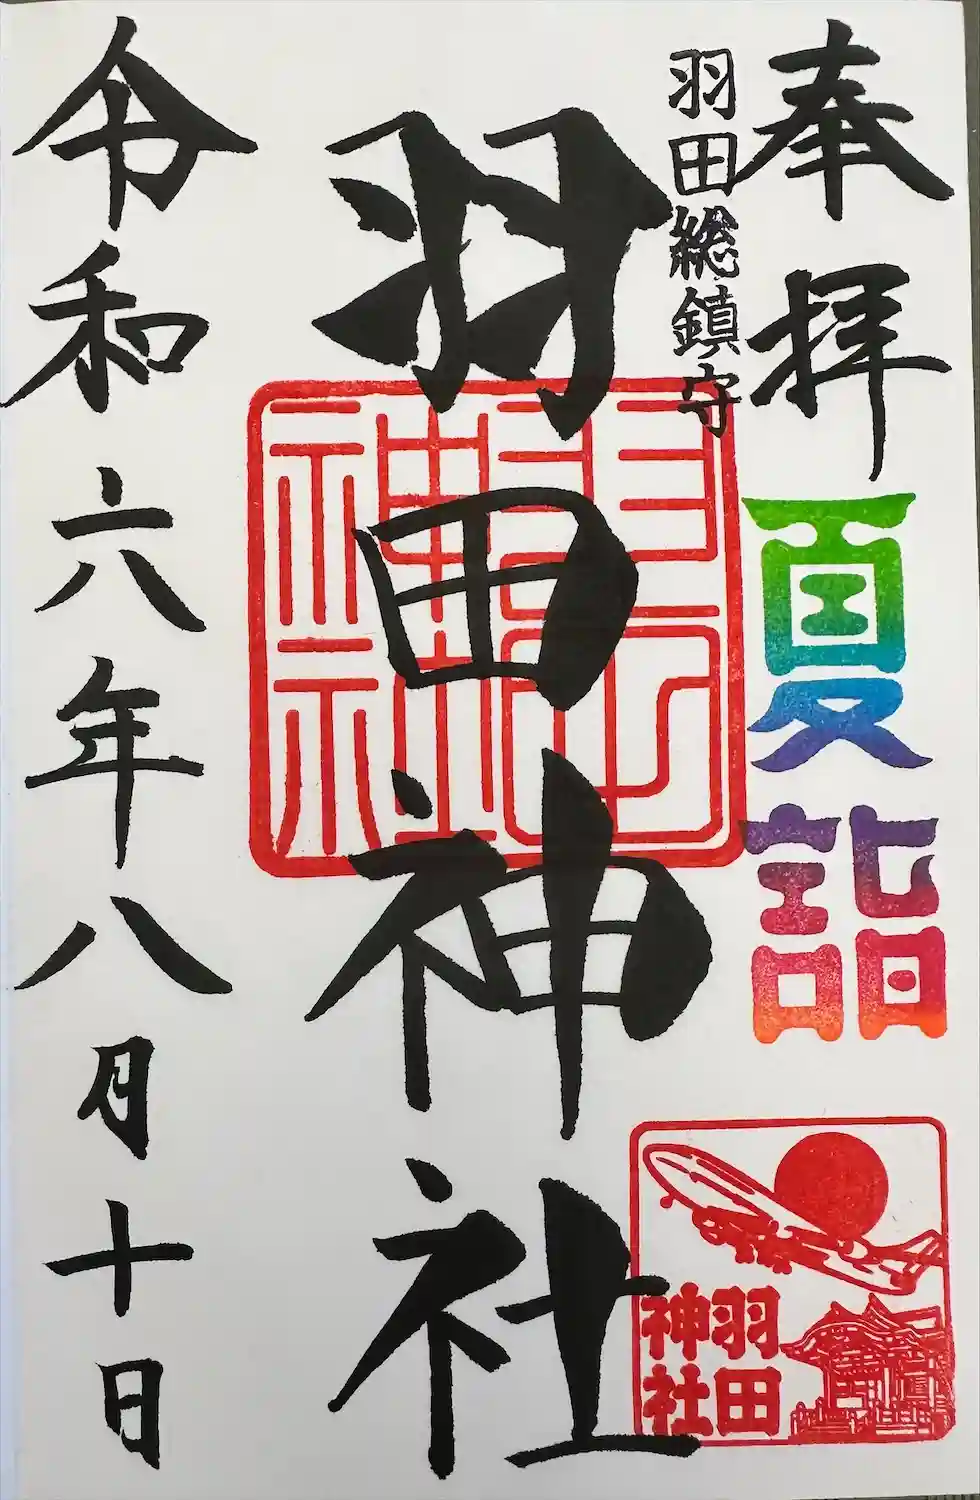 奉拝
夏詣
羽田総鎮守
羽田神社
羽田神社
羽田
神社
令和六年八月十日